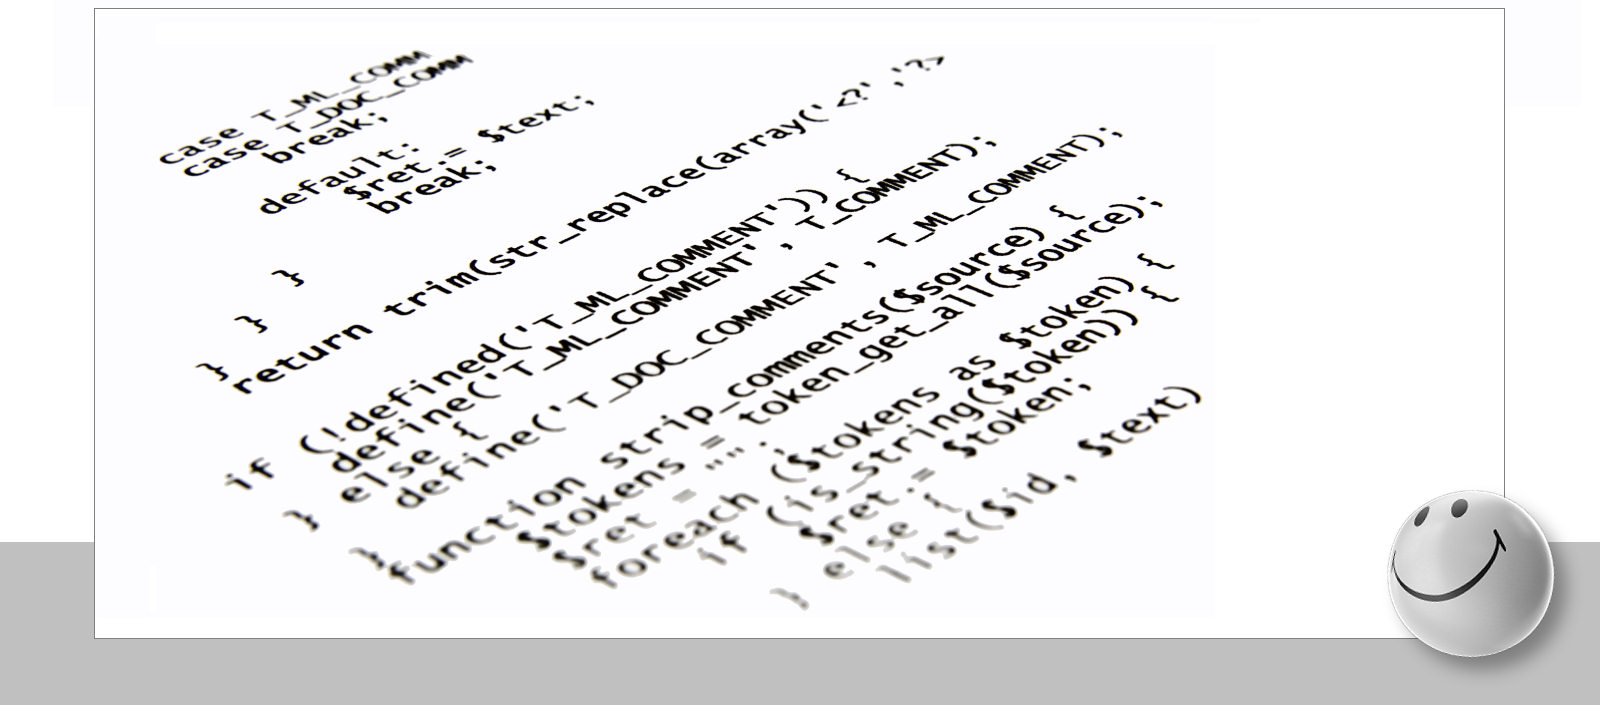 case T_ML_COMM
case T_DOC_COMM
break;
default:
$ret .= $text;
break;
}
}
}
return trim(str_replace(array('<?','?>
if (!defined('T_ML_COMMENT')) {
define('T_ML_COMMENT', T_COMMENT);
} else {
define('T_DOC_COMMENT', T_ML_COMMENT);
}
function strip_comments($source) {
$tokens = token_get_all($source);
$ret = "";
foreach ($tokens as $token) {
if (is_string($token)) {
$ret .= $token;
} else {
list($id, $text)